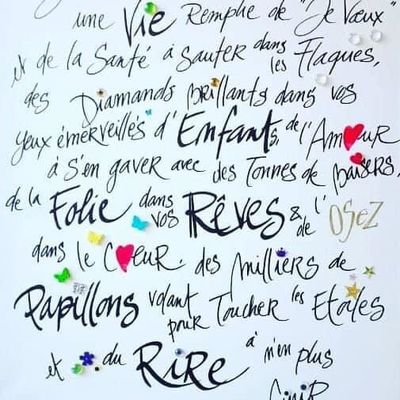 une Vie Remplie de "Je Veux"
et de la Santé à Sauter dans les Flaques,
des Diamands brillants dans vos
yeux émerveillés d'Enfants, de l'Amour
à s'en gaver avec des Tonnes de baisers,
de la Folie dans vos Rêves & de l'OSEZ
dans le Cœur. des Milliers de
Papillons volant pour Toucher les Étoiles
et du RIRE à n'en plus
finir